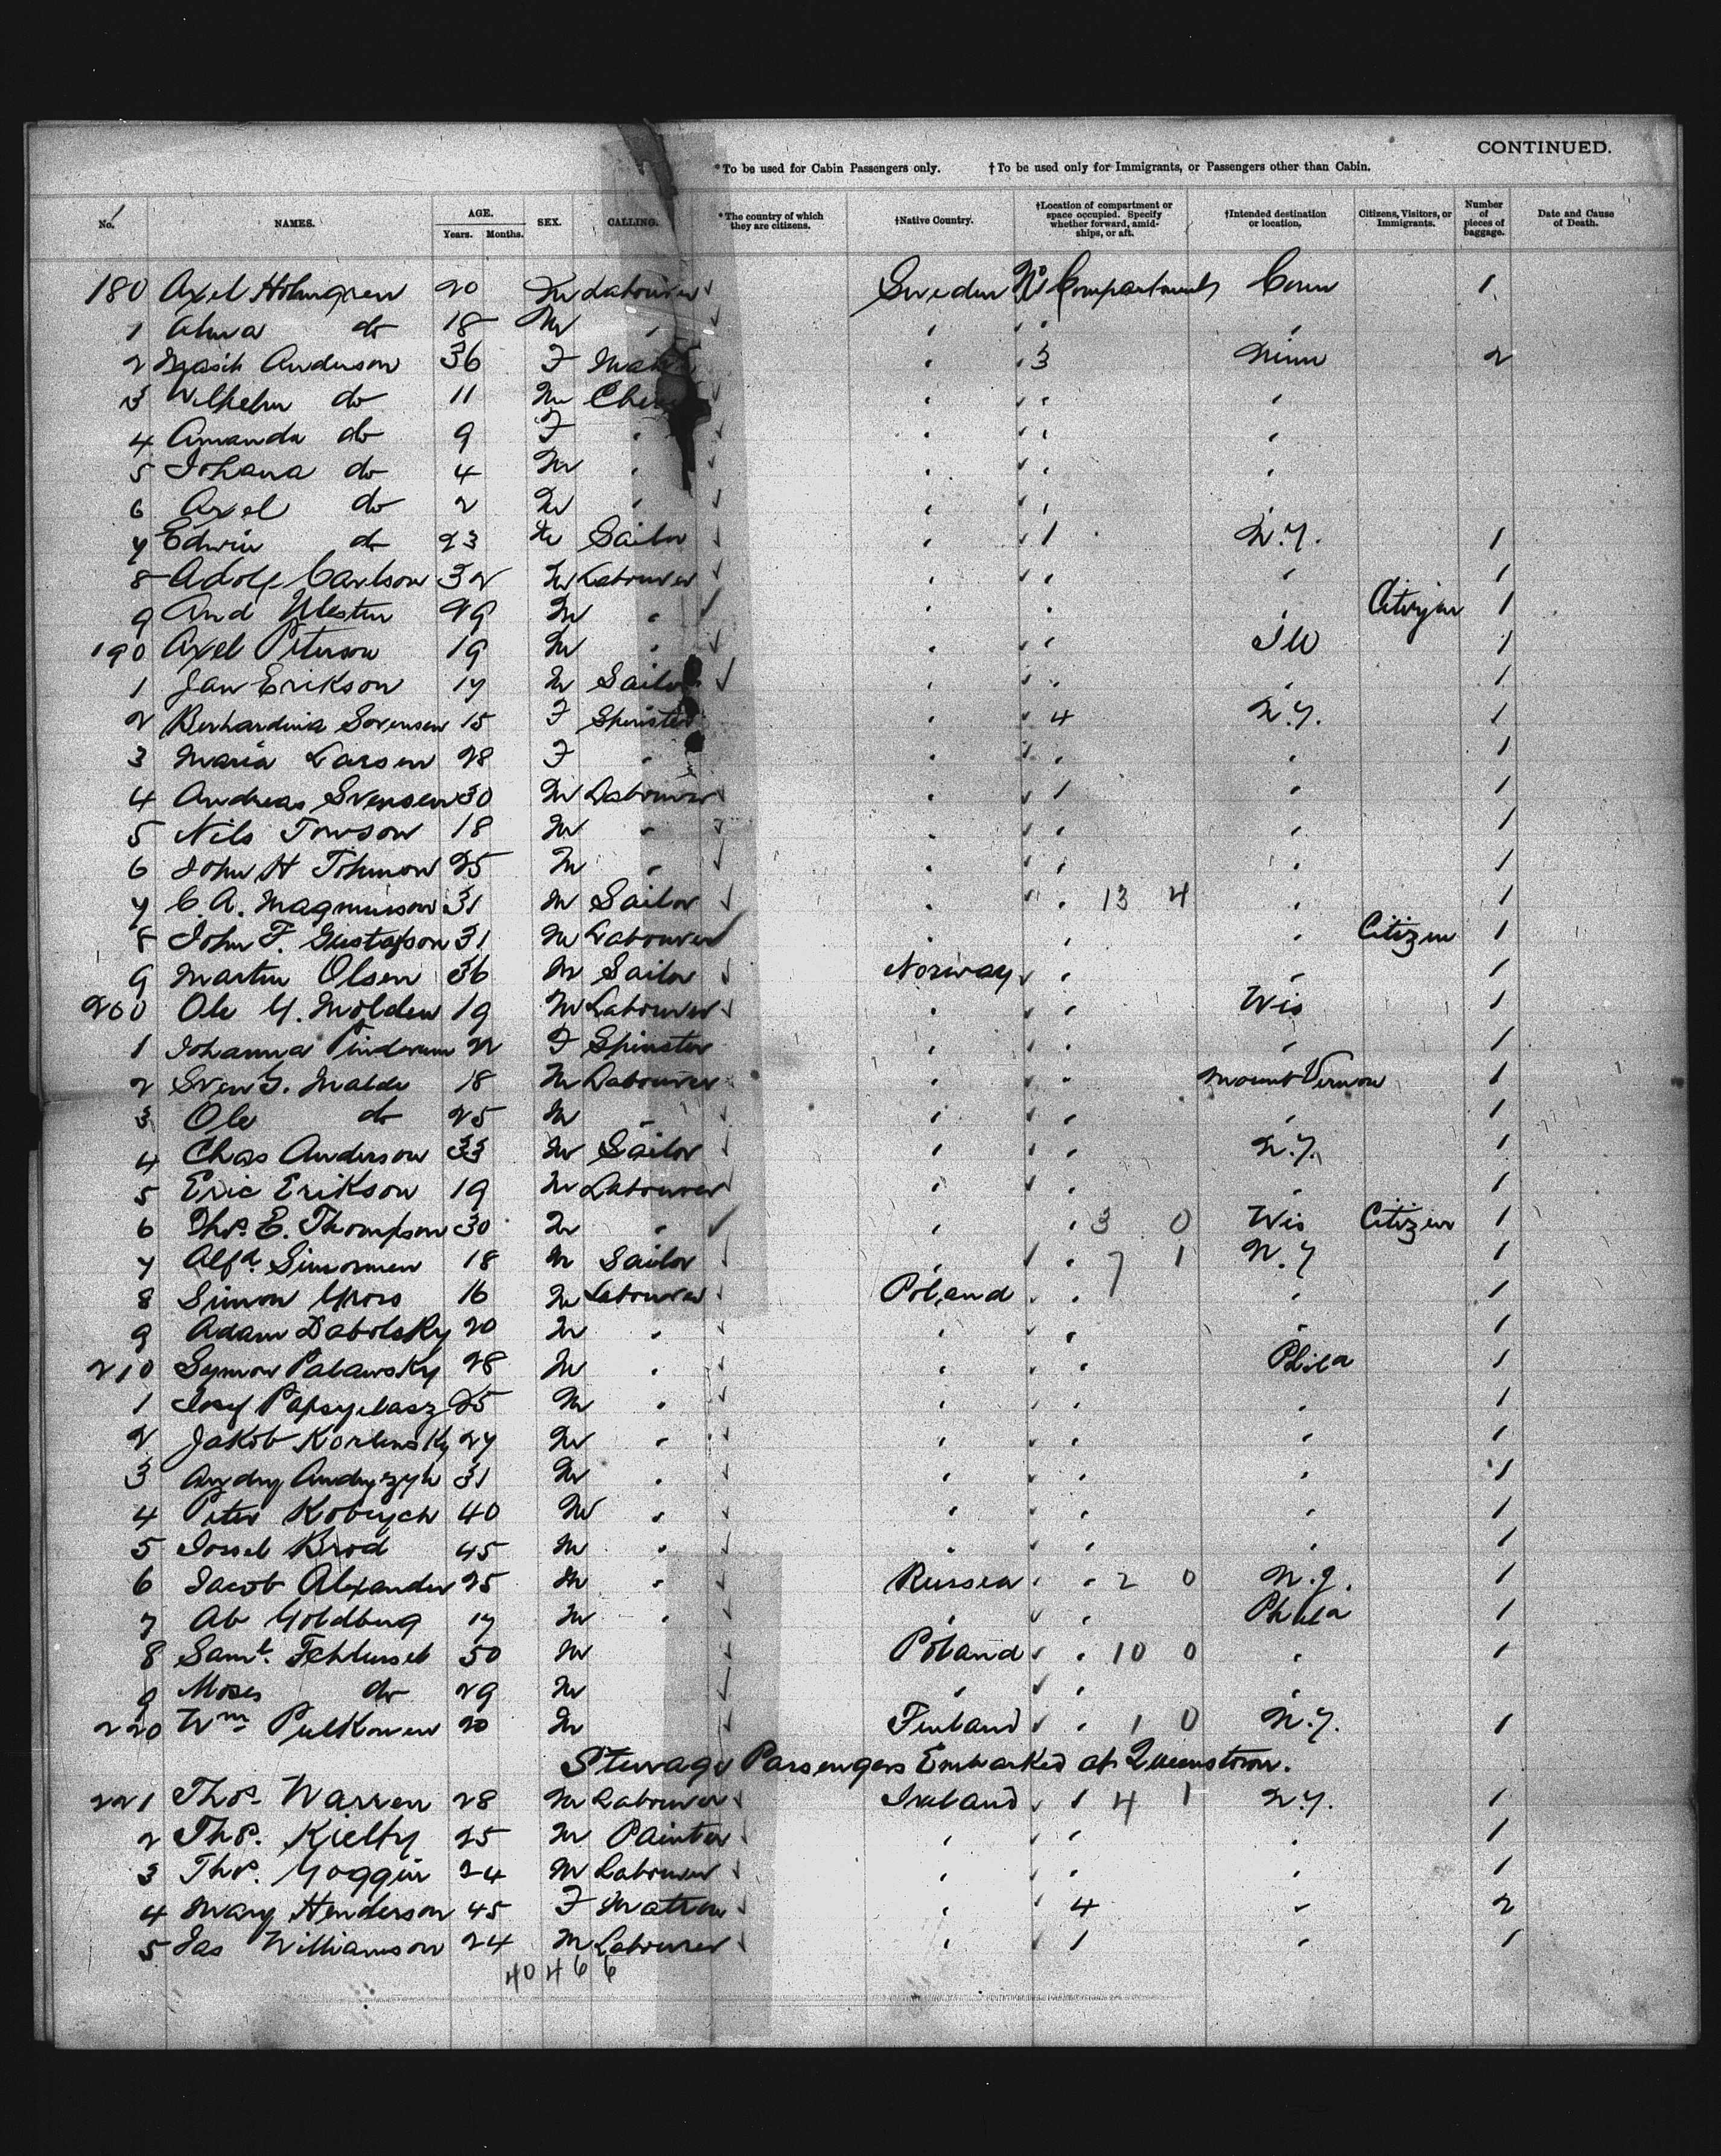 CONTINUED.
*To be used for Cabin Passengers only. †To be used only for Immigrants, or Passengers other than Cabin.
No. NAMES. AGE. Years. Months. SEX. CALLING. *The country of which they are citizens. †Native Country. †Location of compartment or space occupied. Specify whether forward, amidships, or aft. †Intended destination or location, Citizens, Visitors, or Immigrants. Number of pieces of baggage. Date and Cause of Death.
180 Axel Holmgren 20 M Labourer Sweden No 1 Compartment Conn 1
1 Alma do 18 M
2 Anderson 36 F Matron 3 Minn 2
3 Wilhelm do 11 M
4 Amanda do 9 F
5 Johana do 4 M
6 Axel do 2 M
7 Edwin do 23 M Sailor 1 N.Y. 1
8 Adolf Carlson 32 M Labourer 1
9 And Westin 29 M Citizen 1
190 Axel Peterson 19 M Ill 1
1 Jan Erikson 17 M Sailor 1
2 Berhardina Sorensen 15 F Spinster 4 N.Y. 1
3 Maria Larsen 28 F 1
4 Andreas Svensen 30 M Labourer 1 1
5 Nils 18 M 1
6 John H 25 M 1
7 C. A. Magnusson 31 M Sailor 13 4 1
8 John F. Gustafson 31 M Labourer Citizen 1
9 Martin Olsen 36 M Sailor Norway 1
200 Ole G. Molden 19 M Labourer Wis 1
1 Johanna 22 F Spinster 1
2 Sven G. Malde 18 M Labourer Mount Vernon 1
3 Ole do 25 M 1
4 Chas Anderson 33 M Sailor N.Y. 1
5 Eric Erikson 19 M Labourer 1
6 Thos. E. Thompson 30 M 3 0 Wis Citizen 1
7 Alfd. 18 M Sailor 7 1 N.Y 1
8 Simon 16 M Labourer Poland 1
9 Adam Dabolsky 20 M 1
210 Symon Palawsky 28 M Phila 1
1 Josef 25 M 1
2 Jakob 27 M 1
3 31 M 1
4 Peter Kobrych 40 M 1
5 Jossel Brod 45 M 1
6 Jacob Alexander 25 M Russia 2 0 N.J. 1
7 Ab Goldberg 17 M Phila 1
8 Saml. 50 M Poland 10 0 1
9 Moses do 29 M
220 Wm Pulkonen 20 M Finland 1 0 N.Y. 1
Steerage Passengers Embarked at Queenstown.
221 Thos. Warren 28 M Labourer Ireland 1 4 1 N.Y. 1
2 Thos. Kielty 25 M Painter 1
3 Thos. Goggin 24 M Labourer 1
4 Mary Henderson 45 F Matron 4 2
5 Jas Williamson 24 M Labourer 1 1
40 4 6 6